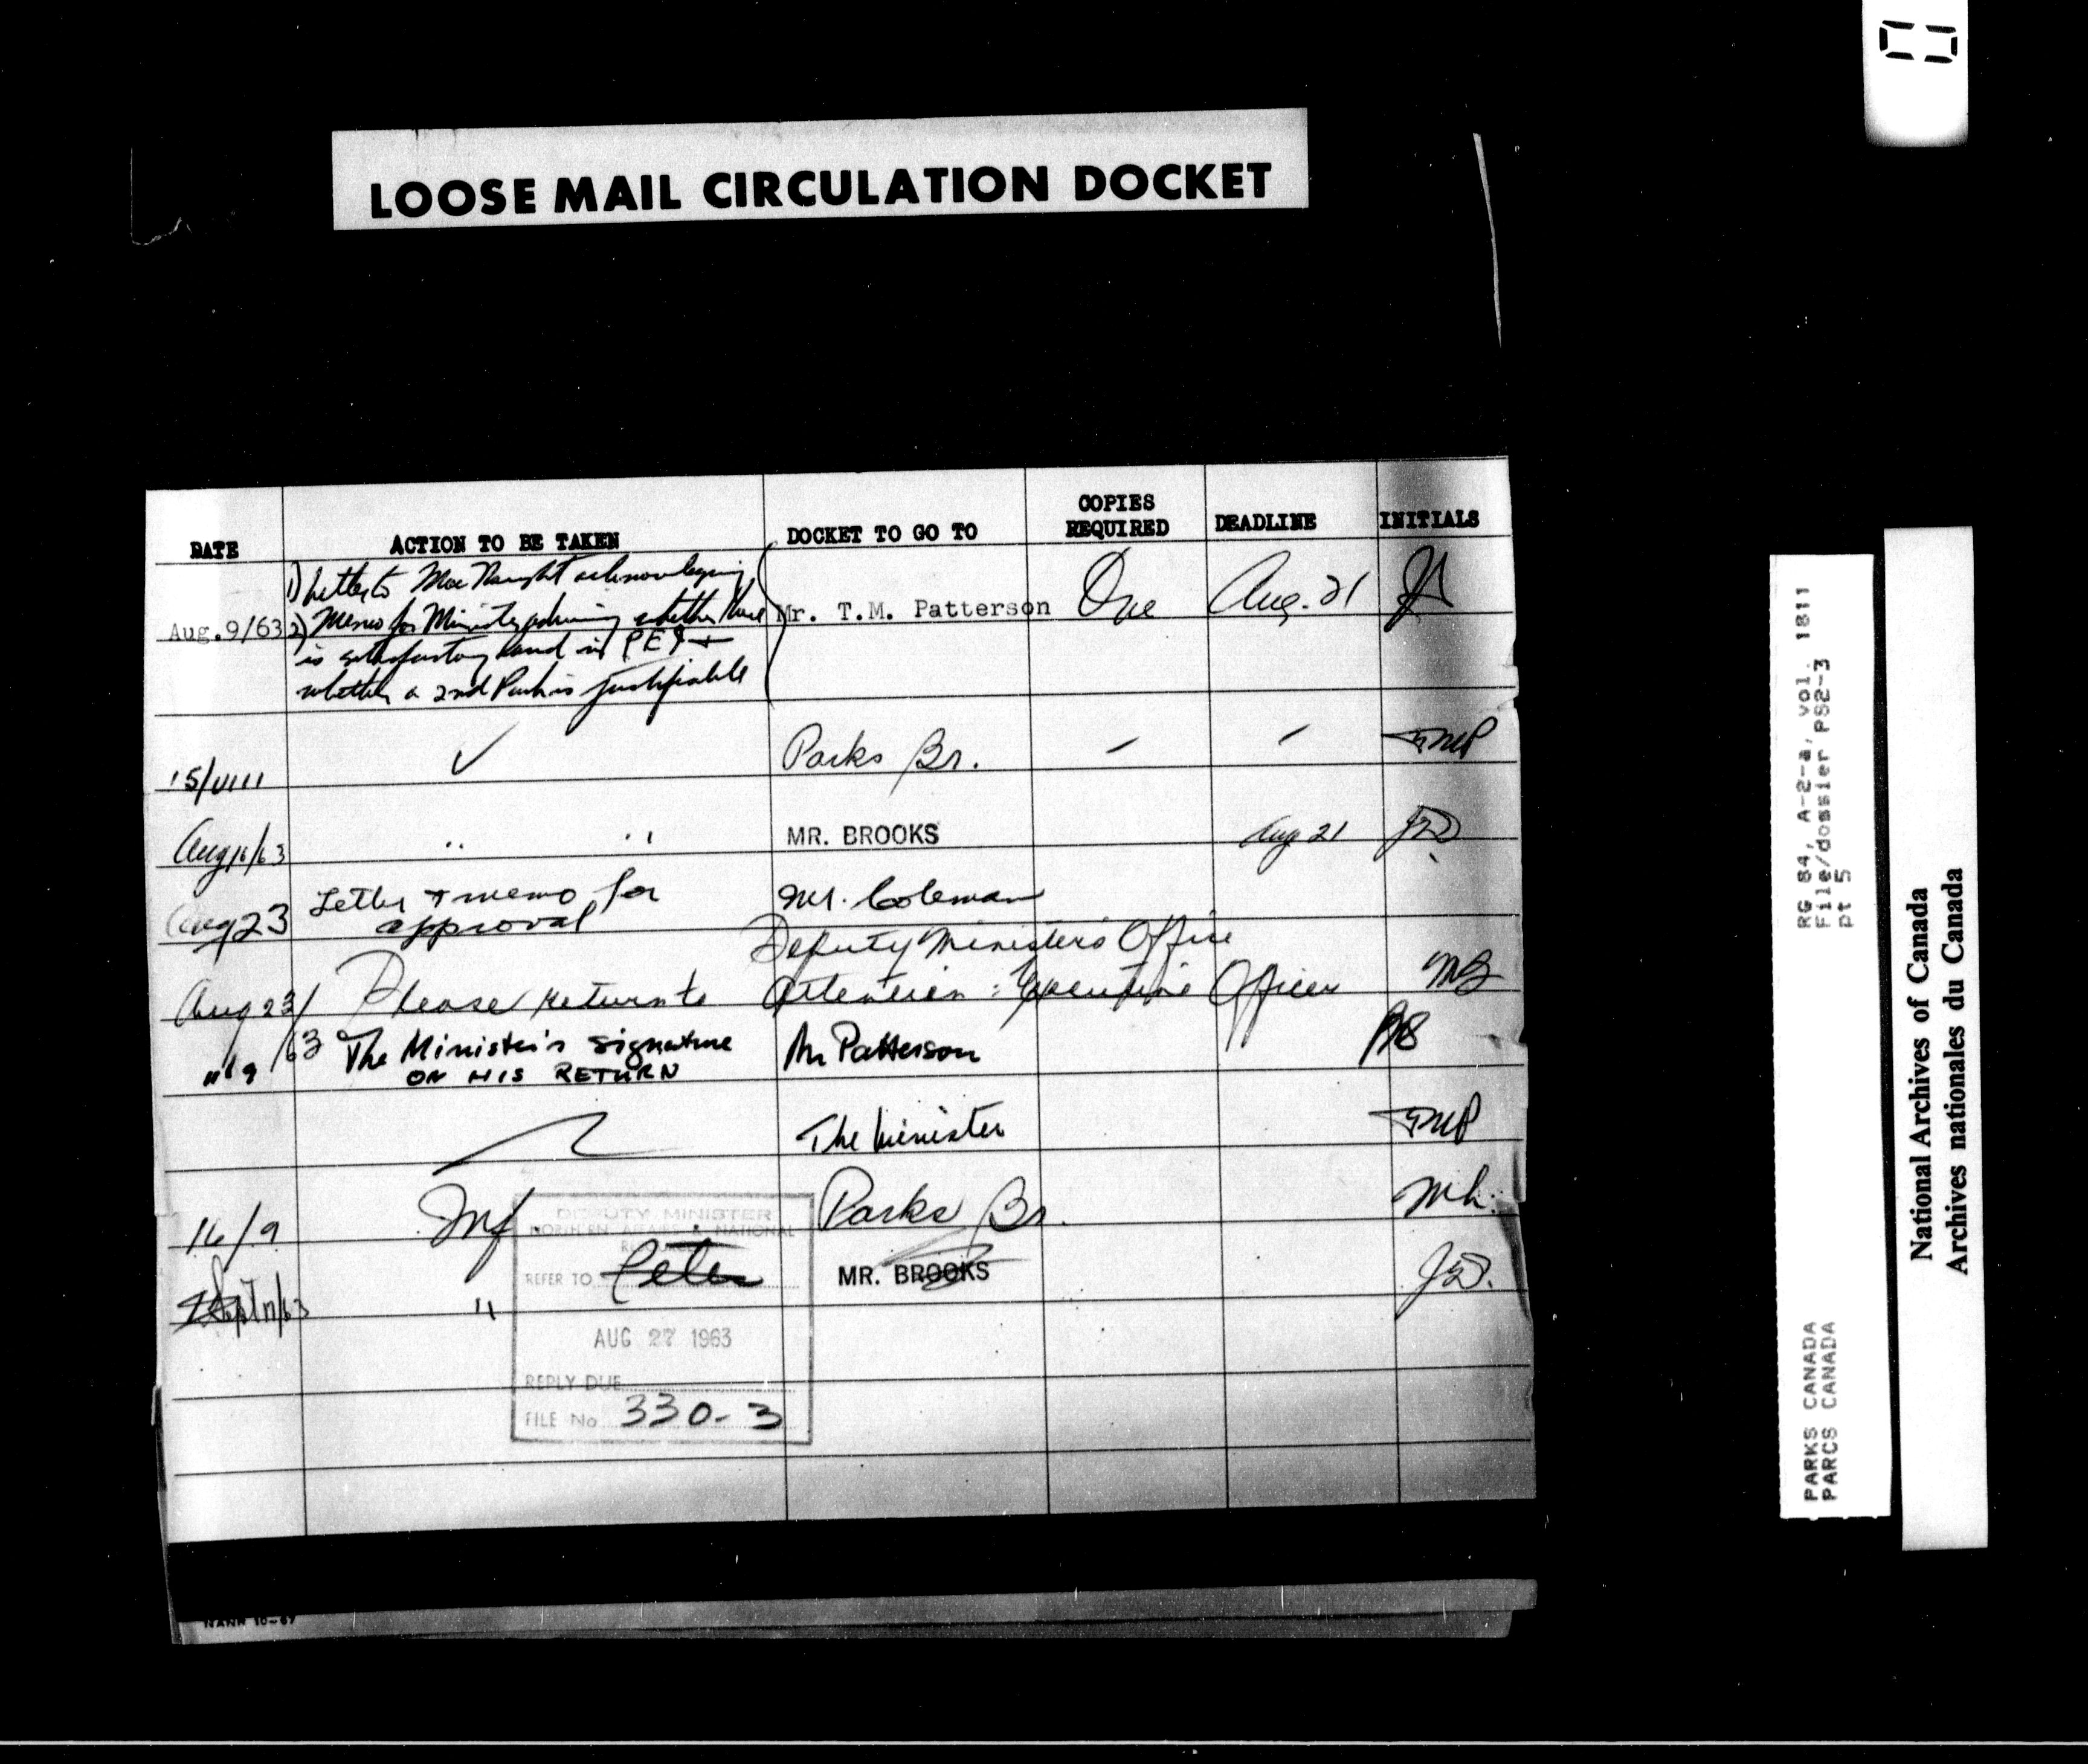 LOOSE MAIL CIRCULATION DOCKET
DATE ACTION TO BE TAKEN DOCKET TO GO TO COPIES REQUIRED DEADLINE INITIALS
1) Letter to MacNaught acknowledging
Aug.9/63 2) Memo for Minister advising whether there Mr. T.M. Patterson One Aug. 21
is satisfactory land in PEI +
whether a 2nd Park is justifiable
15/VIII ✓ Parks Br. - - TMP
Aug 16/63 " " MR. BROOKS Aug 21
Aug 23 Letter + memo for Mr. Coleman
approval
Deputy Minister's Office
Aug 23/63 Please return to Attention: Executive Officer
" 9 The Minister's signature Mr Patterson
ON HIS RETURN
The Minister TMP
16/9 Inf Parks Br. Mh.
Sept 17/63 " MR. BROOKS
DEPUTY MINISTER
NORTHERN AFFAIRS & NATIONAL
RESOURCES
REFER TO Peter
AUG 27 1963
REPLY DUE
FILE No 330-3
NANR 10-67
RG 84, A-2-a, vol. 1811
File/dossier PS2-3
pt 5
PARKS CANADA
PARCS CANADA
National Archives of Canada
Archives nationales du Canada